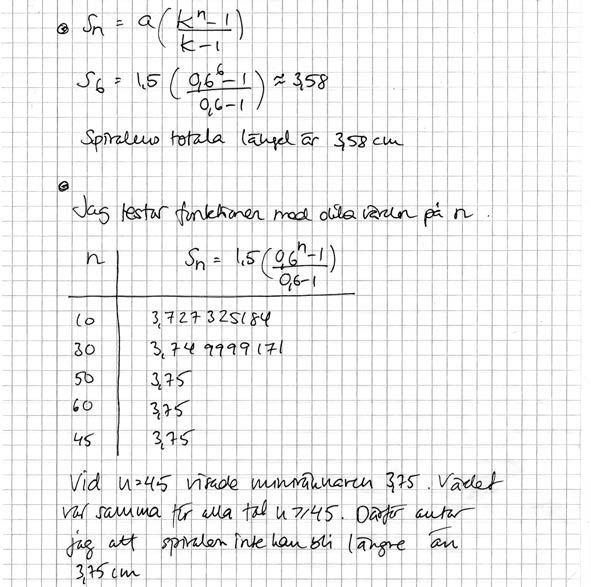 Sn = a (kⁿ-1 / k-1)
S6 = 1,5 (0,6⁶-1 / 0,6-1) ≈ 3,58
Spiralens totala längd är 3,58 cm
Jag testar funktionen med olika värden på n.
n Sn = 1,5 (0,6ⁿ-1 / 0,6-1)
10 3,727325184
30 3,749999171
50 3,75
60 3,75
45 3,75
Vid n=45 visade miniräknaren 3,75. Värdet
var samma för alla tal n≥45. Därför antar
jag att spiralen inte kan bli längre än
3,75 cm